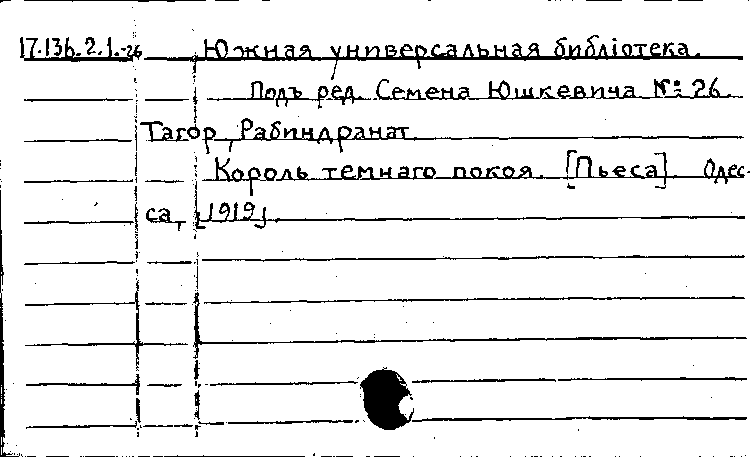 17.136.2.1.-26 Южная универсальная библіотека.
Подъ ред. Семена Юшкевича №: 26.
Тагор, Рабиндранат
Король темнаго покоя. [Пьеса]. Одес-
са, [1919].